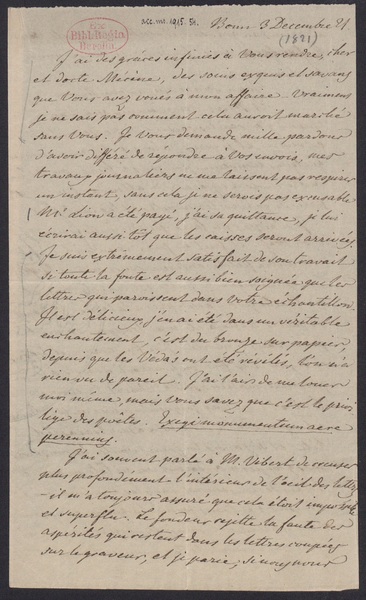 Ex
Bibl. Regia
Berolin.
acc. ms. 1915. 54.
Bonn 3 Decembre 21.
(1821)
J'ai des grâces infinies à Vous rendre, cher
et docte Mécène, des soins exquis et savans
que Vous avez voués à mon affaire. Vraiment
je ne sais pas comment cela auroit marché
sans Vous. Je Vous demande mille pardons
d'avoir différé de répondre à Vos envois, mes
travaux journaliers ne me laissent pas respirer
un instant, sans cela je ne serois pas excusable
Mr. Lion a été payé, j'ai sa quittance, je lui
écrirai aussi tôt que les caisses seront arrivées.
Je suis extrêmement satisfait de son travail
si toute la fonte est aussi bien soignée que les
lettres qui paroissent dans votre échantillon.
Il est délicieux j'en ai été dans un véritable
enchantement, c'est du bronze sur papier,
depuis que les Védas ont été révélés, l'on n'a
rien vu de pareil. J'ai l'air de me louer
moi même, mais Vous savez que c'est le privi
lège des poètes. Exegi monumentum aere
perennius.
J'ai souvent parlé à M. Vibert de creuser
plus profondément l'intérieur de l'œil des lettres
- il m'a toujours assuré que cela étoit impossible
et superflu. Le fondeur rejette la faute des
aspérités qui restent dans les lettres coupées
sur le graveur, et je parie, si nous nous